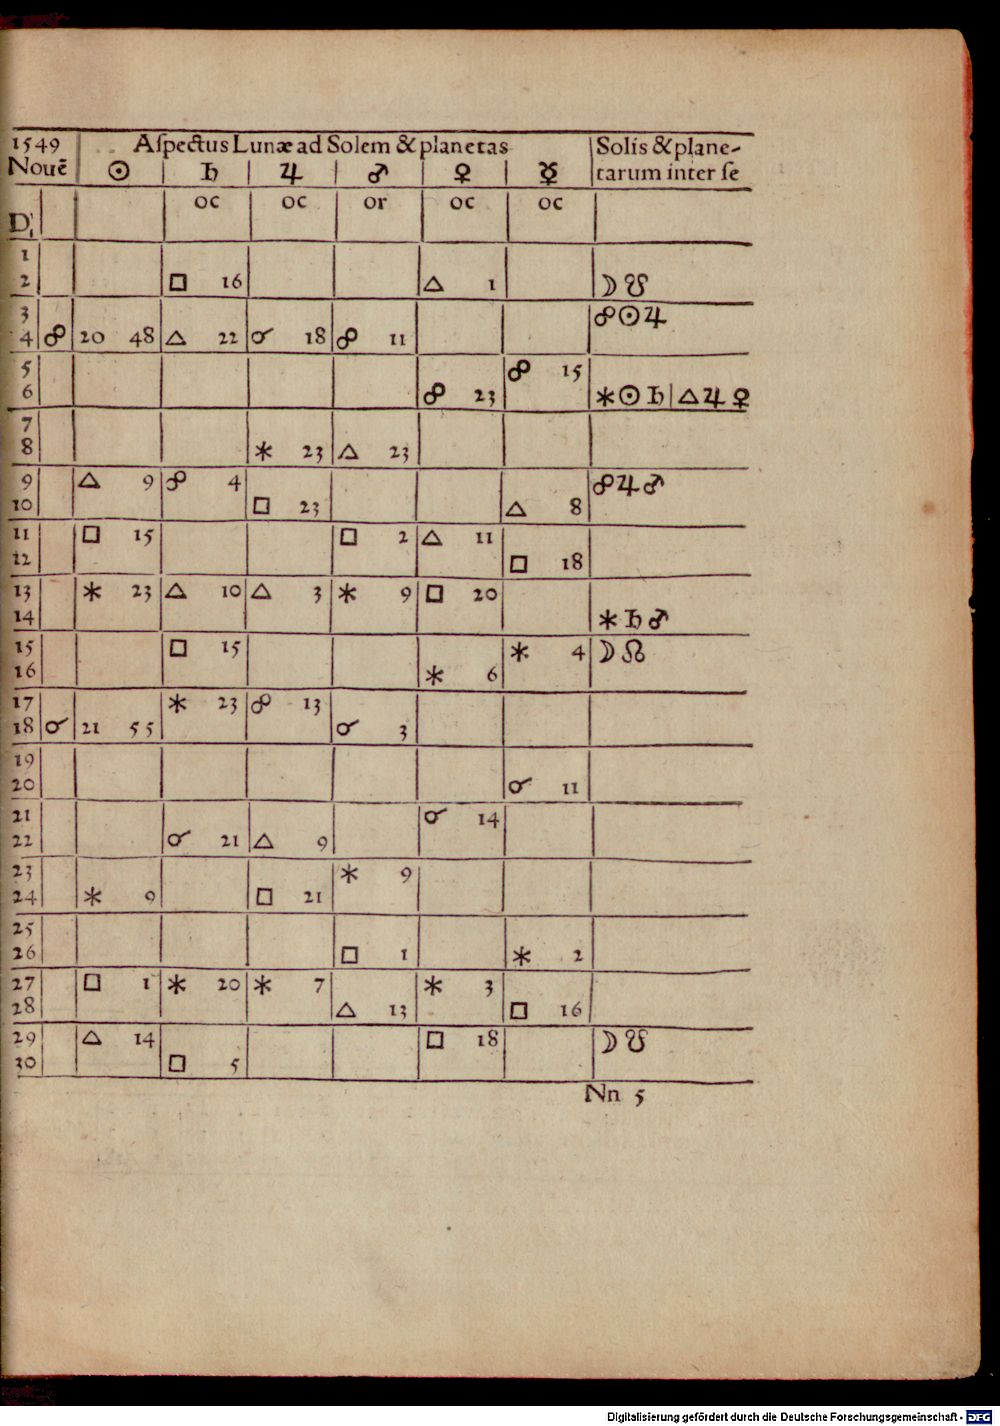 1549 Aſpectus Lunæ ad Solem & planetas Solis & plane-
Nouē ☉ ♄ ♃ ♂ ♀ ☿ tarum inter ſe
oc oc or oc oc
D
1
2 □ 16 △ 1 ☽ ☋
3 ☍ ☉ ♃
4 ☍ 20 48 △ 22 ☌ 18 ☍ 11
5 ☍ 15
6 ☍ 23 ⚹ ☉ ♄ | △ ♃ ♀
7
8 ⚹ 23 △ 23
9 △ 9 ☍ 4 ☍ ♃ ♂
10 □ 23 △ 8
11 □ 15 □ 2 △ 11
12 □ 18
13 ⚹ 23 △ 10 △ 3 ⚹ 9 □ 20
14 ⚹ ♄ ♂
15 □ 15 ⚹ 4 ☽ ☊
16 ⚹ 6
17 ⚹ 23 ☍ 13
18 ☌ 21 55 ☌ 3
19
20 ☌ 11
21 ☌ 14
22 ☌ 21 △ 9
23 ⚹ 9
24 ⚹ 9 □ 21
25
26 □ 1 ⚹ 2
27 □ 1 ⚹ 20 ⚹ 7 ⚹ 3
28 △ 13 □ 16
29 △ 14 □ 18 ☽ ☋
30 □ 5
Nn 5
Digitalisierung gefördert durch die Deutsche Forschungsgemeinschaft - DFG